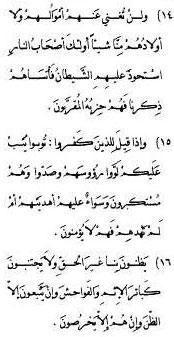 (١٤) ولن تغني عنهم أموالهم ولا
أولادهم منا شيئاً أولئك أصحاب النار
استحوذ عليهم الشيطان فأنساهم
ذكرنا فهم حزبه المقربون.
(١٥) وإذا قيل للذين كفروا : توبوا يتب
عليكم لووا رؤوسهم وصدوا وهم
مستكبرون وسواء عليهم أهديتهم أم
لم تهدهم فهم لا يؤمنون.
(١٦) يظنون بنا غير الحق ولا يجتنبون
كبائر الإثم والفواحش وإن يتبعون إلا
الظن وإن هم إلا يخرصون.